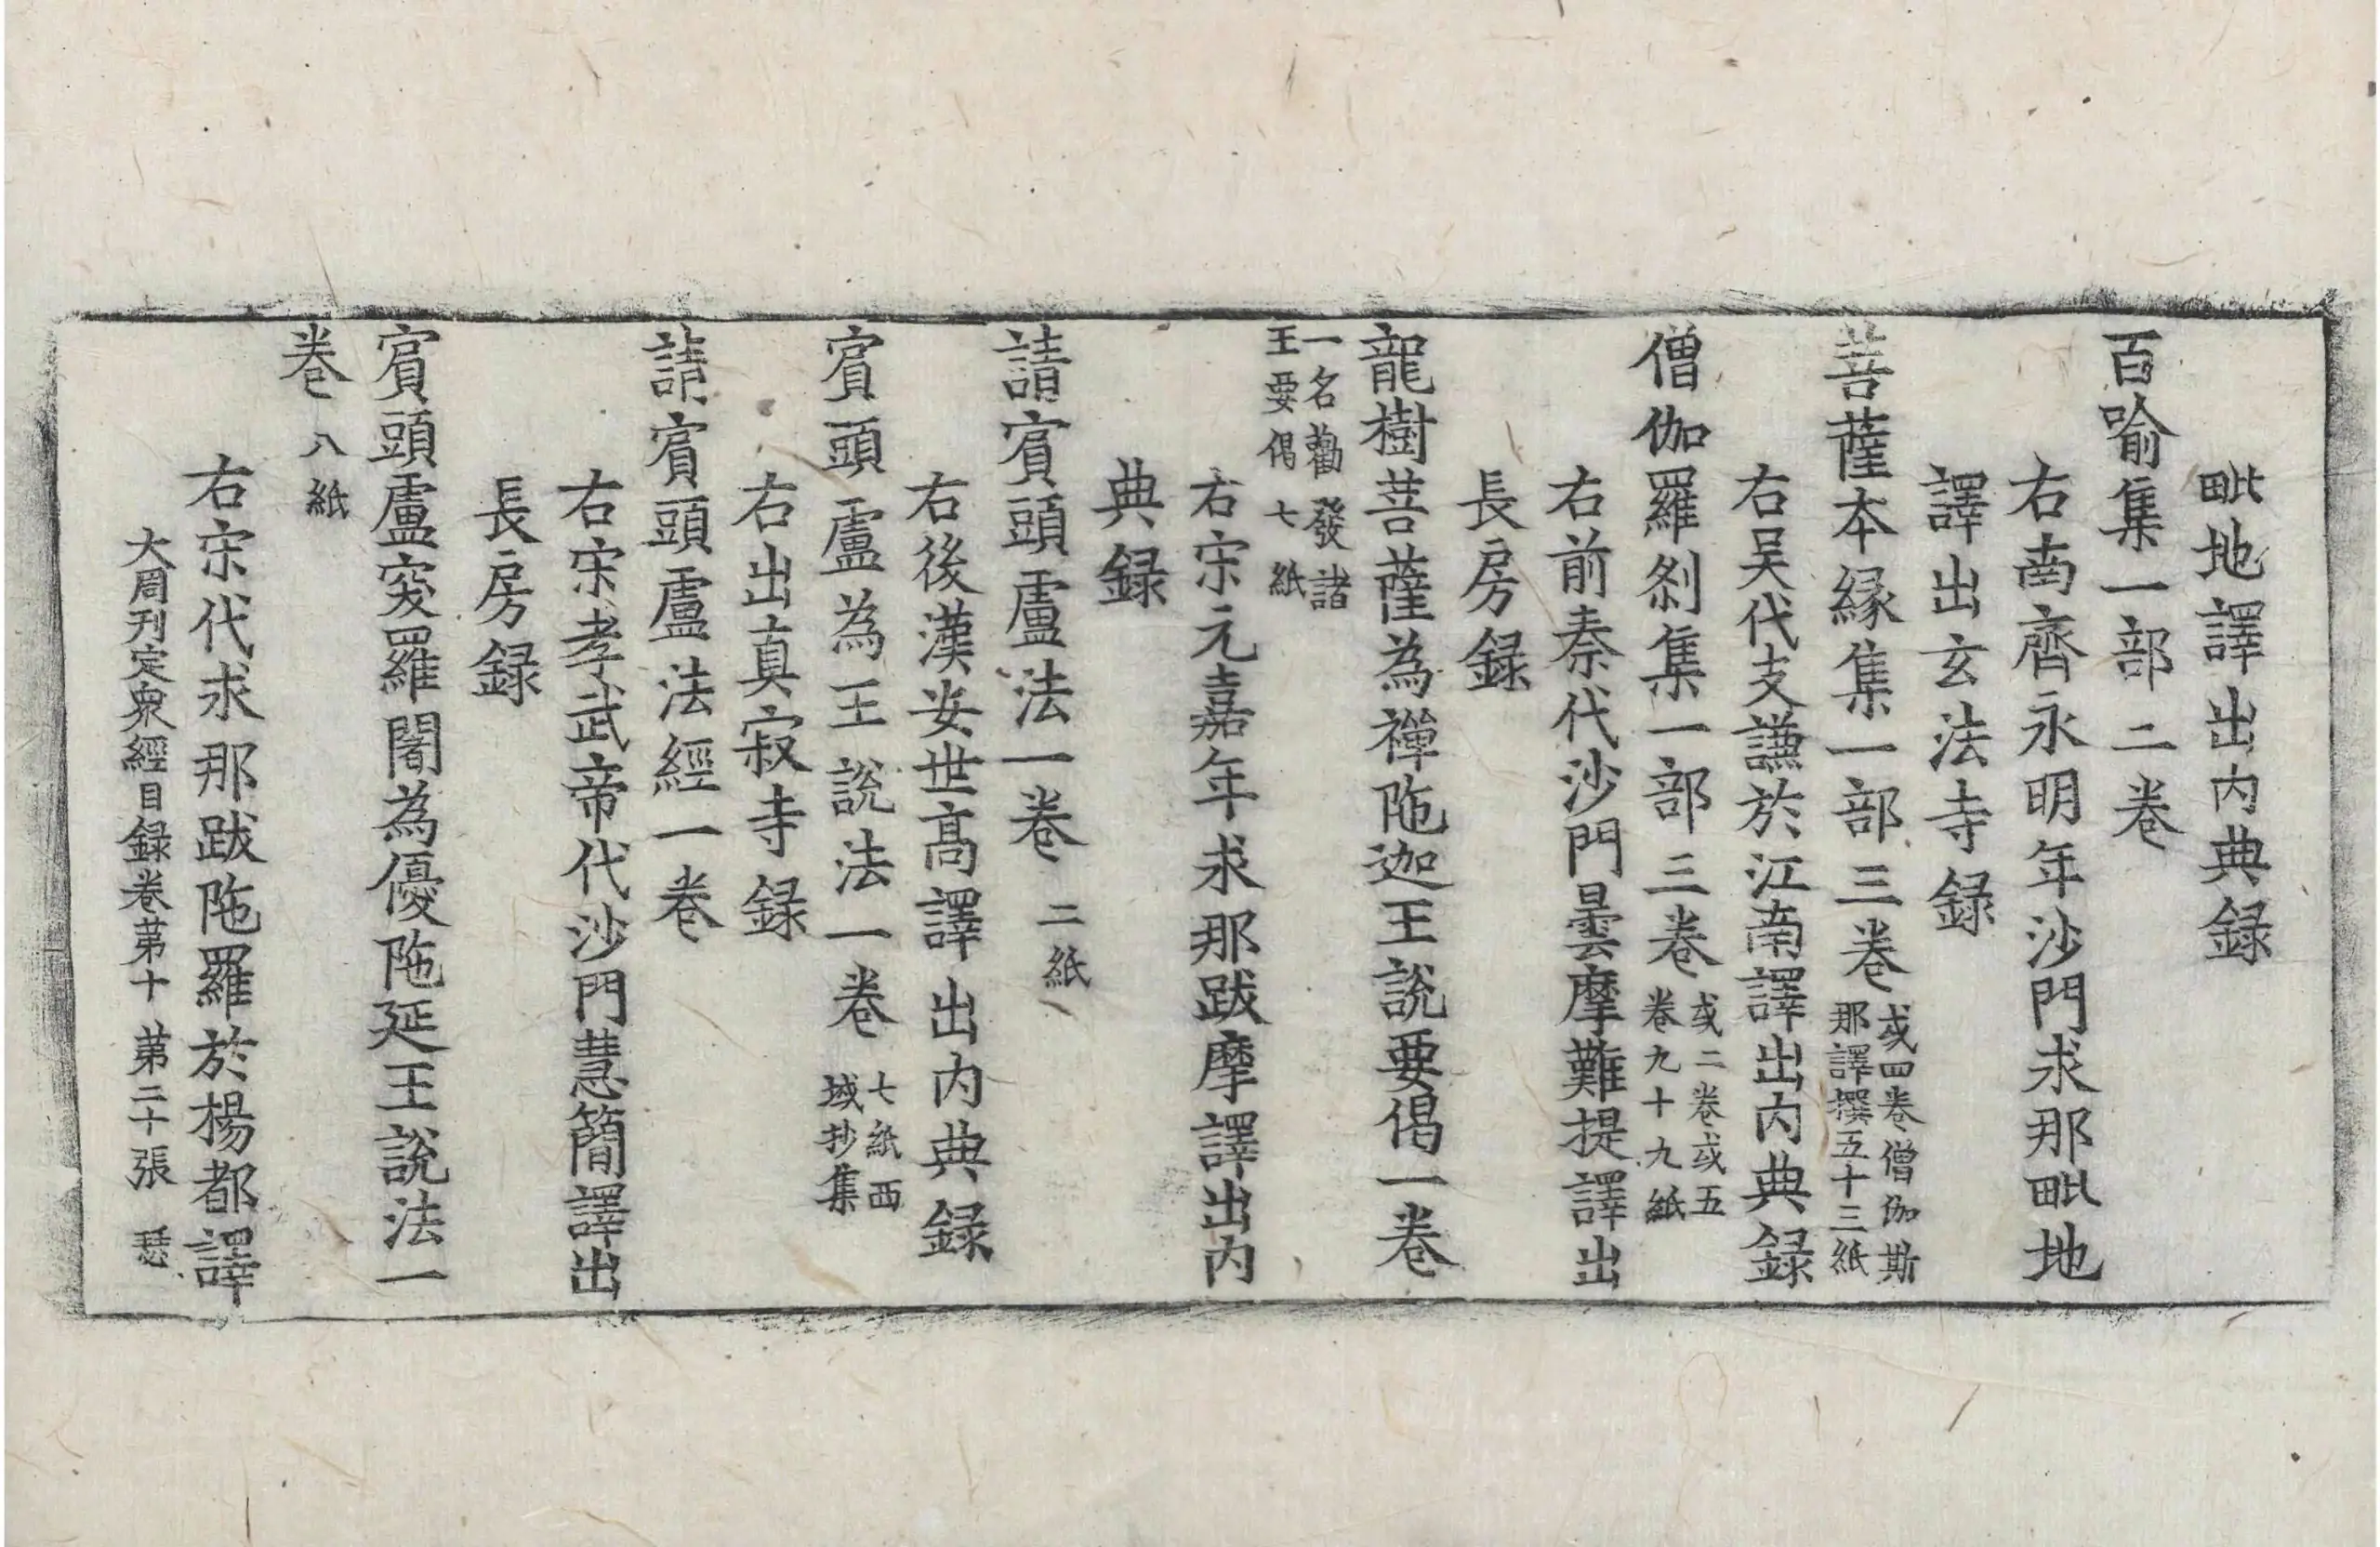 毗地譯出内典録
百喻集一部二卷
右南齊永明年沙門求那毗地
譯出玄法寺録
菩薩本緣集一部三卷
或四卷僧伽斯
那譯撰五十三紙
右吴代支謙於江南譯出内典録
僧伽羅剎集一部三卷
或二卷或五
卷九十九紙
右前秦代沙門曇摩難提譯出
長房録
龍樹菩薩為禪陁迦王說要偈一卷
一名勸發諸
王要偈七紙
右宋元嘉年求那跋摩譯出内
典録
請賓頭盧法一卷 二紙
右後漢安世髙譯出内典録
賓頭盧為王說法一卷
七紙西
域抄集
右出真寂寺録
請賓頭盧法經一卷
右宋孝武帝代沙門慧簡譯出
長房録
賓頭盧突羅闍為優陁延王說法一
卷 八紙
右宋代求那跋陁羅於楊都譯
大周刊定衆經目録卷苐十 苐二十張 瑟